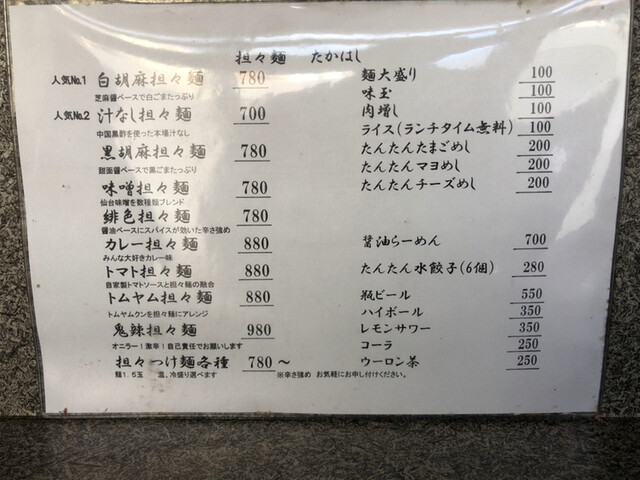 担々麺 たかはし
人気No.1 白胡麻担々麺 780
芝麻醤ベースで白ごまたっぷり
人気No.2 汁なし担々麺 700
中国黒酢を使った本場汁なし
黒胡麻担々麺 780
甜面醤ベースで黒ごまたっぷり
味噌担々麺 780
仙台味噌を数種類ブレンド
緋色担々麺 780
醤油ベースにスパイスが効いた辛さ強め
カレー担々麺 880
みんな大好きカレー味
トマト担々麺 880
自家製トマトソースと担々麺の融合
トムヤム担々麺 880
トムヤムクンを担々麺にアレンジ
鬼辣担々麺 980
オニラー!激辛!自己責任でお願いします
担々つけ麺各種 780～
麺1.5玉 温、冷盛り選べます
※辛さ強め お気軽にお申し付けください。
麺大盛り 100
味玉 100
肉増し 100
ライス(ランチタイム無料) 100
たんたんたまごめし 200
たんたんマヨめし 200
たんたんチーズめし 200
醤油らーめん 700
たんたん水餃子(6個) 280
瓶ビール 550
ハイボール 350
レモンサワー 350
コーラ 250
ウーロン茶 250